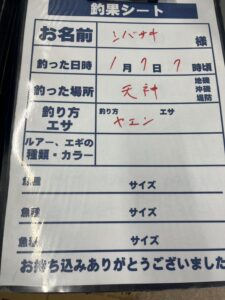 釣果シート
お名前 シバサキ 様
釣った日時 1月7日 7時頃
釣った場所 天神 地磯 沖磯 堤防
釣り方 エサ 釣り方 エサ
ヤエン
ルアー、エギの
種類・カラー
魚種 サイズ
魚種 サイズ
魚種 サイズ
お持ち込みありがとうございました